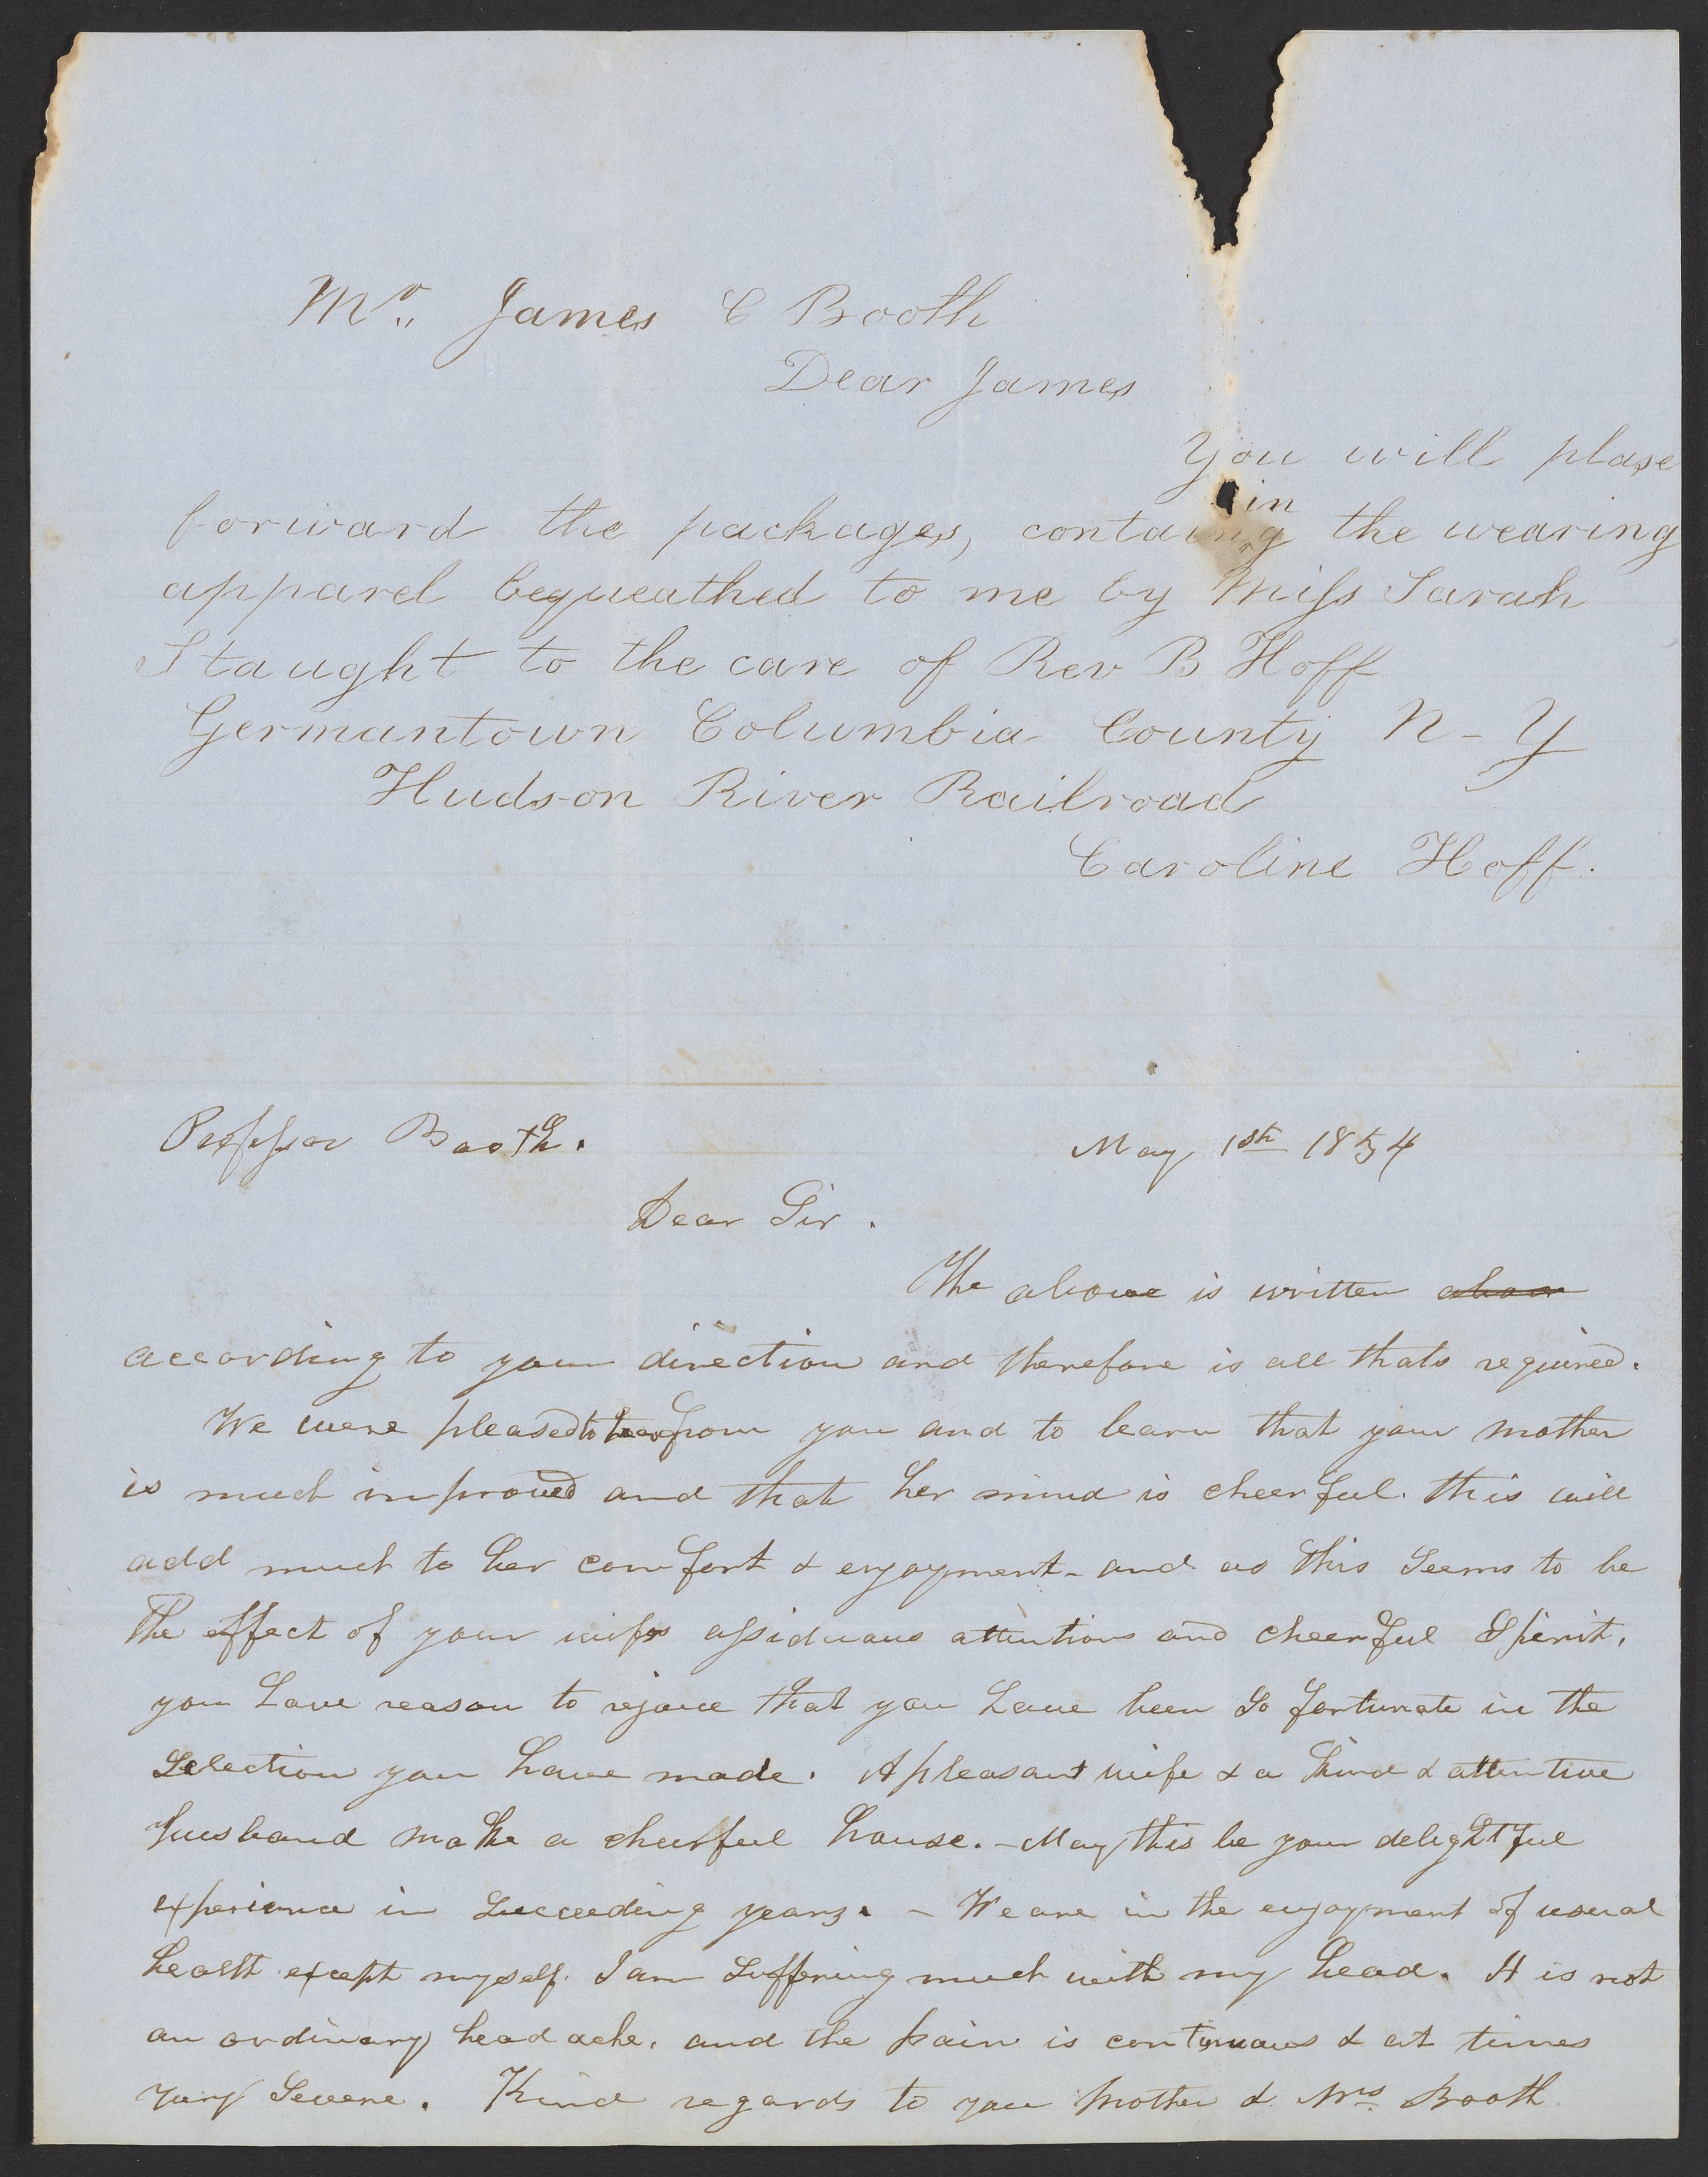 Mr. James C Booth
Dear James
You will plase
forward the packages, containing the wearing
apparel bequeathed to me by Miss Sarah
Staught to the care of Rev B Hoff
Germantown Columbia County N-Y
Hudson River Railroad
Caroline Hoff.
Professor Booth. May 1st 1854
Dear Sir.
The above is written above
according to your direction and therefore is all thats required.
We were pleased to hear from you and to learn that your mother
is much improved and that her mind is cheerful. this will
add much to her comfort & enjoyment - and as this seems to be
the effect of your wifes assiduous attentions and cheerful spirit,
you have reason to rejoice that you have been so fortunate in the
selection you have made. A pleasant wife & a kind & attentive
husband make a cheerful house. - May this be your delightful
experience in succeeding years. - We are in the enjoyment of usual
health except myself. I am suffering much with my head. It is not
an ordinary head ache, and the pain is continuous & at times
very severe. Kind regards to you mother & Mrs Booth.